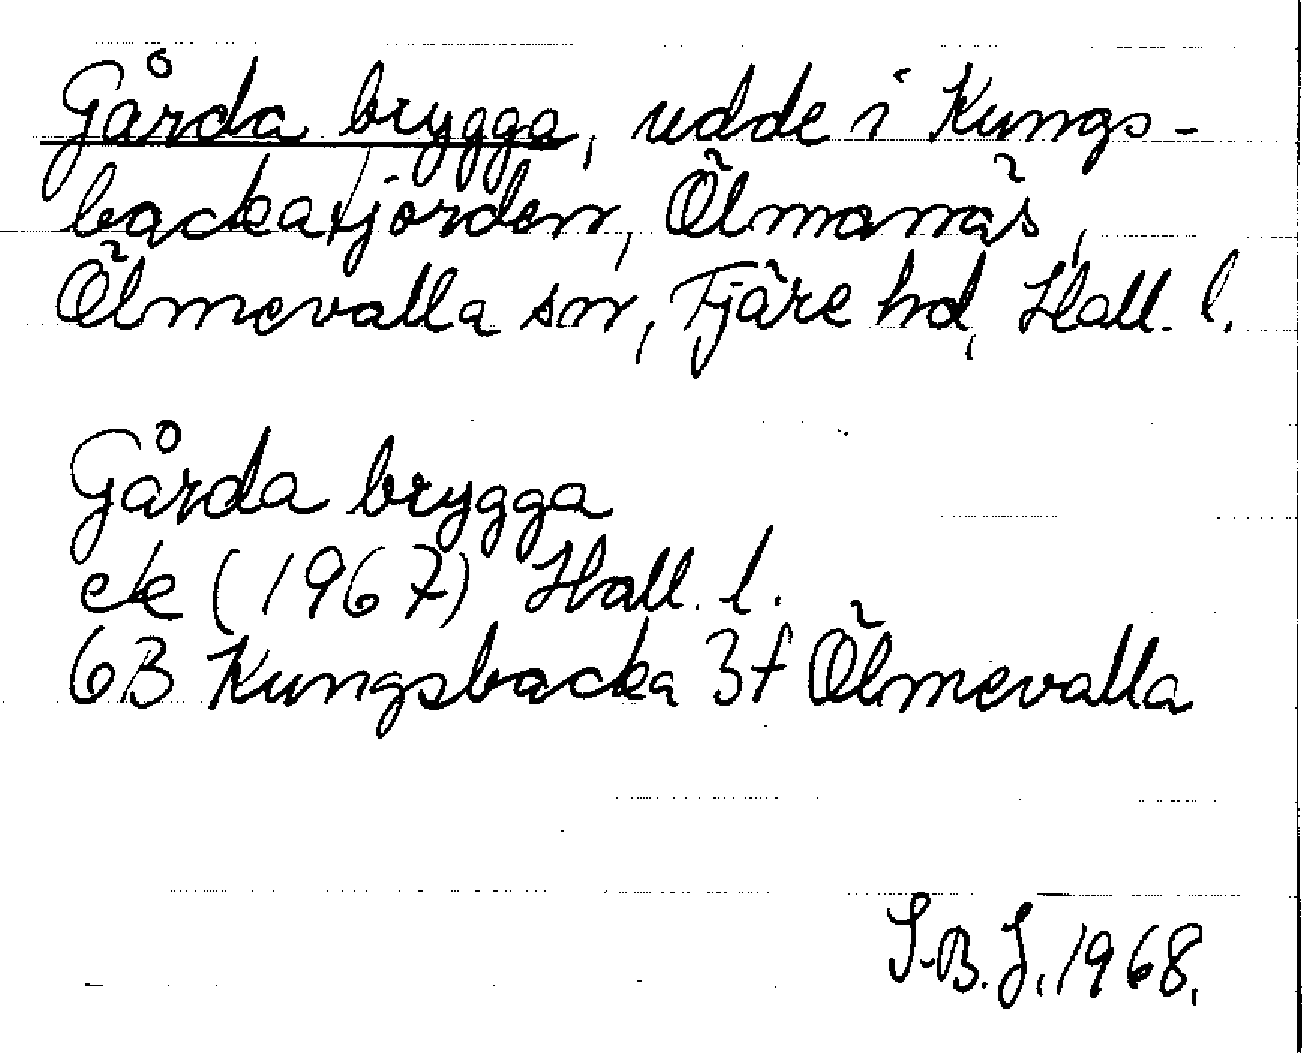 Gårda brygga, udde i Kungs-
backafjorden, Ölmanäs,
Ölmevalla sn, Fjäre hd, Hall. l.
Gårda brygga
ek (1967) Hall. l.
6B Kungsbacka 3f Ölmevalla
S-B. J. 1968.